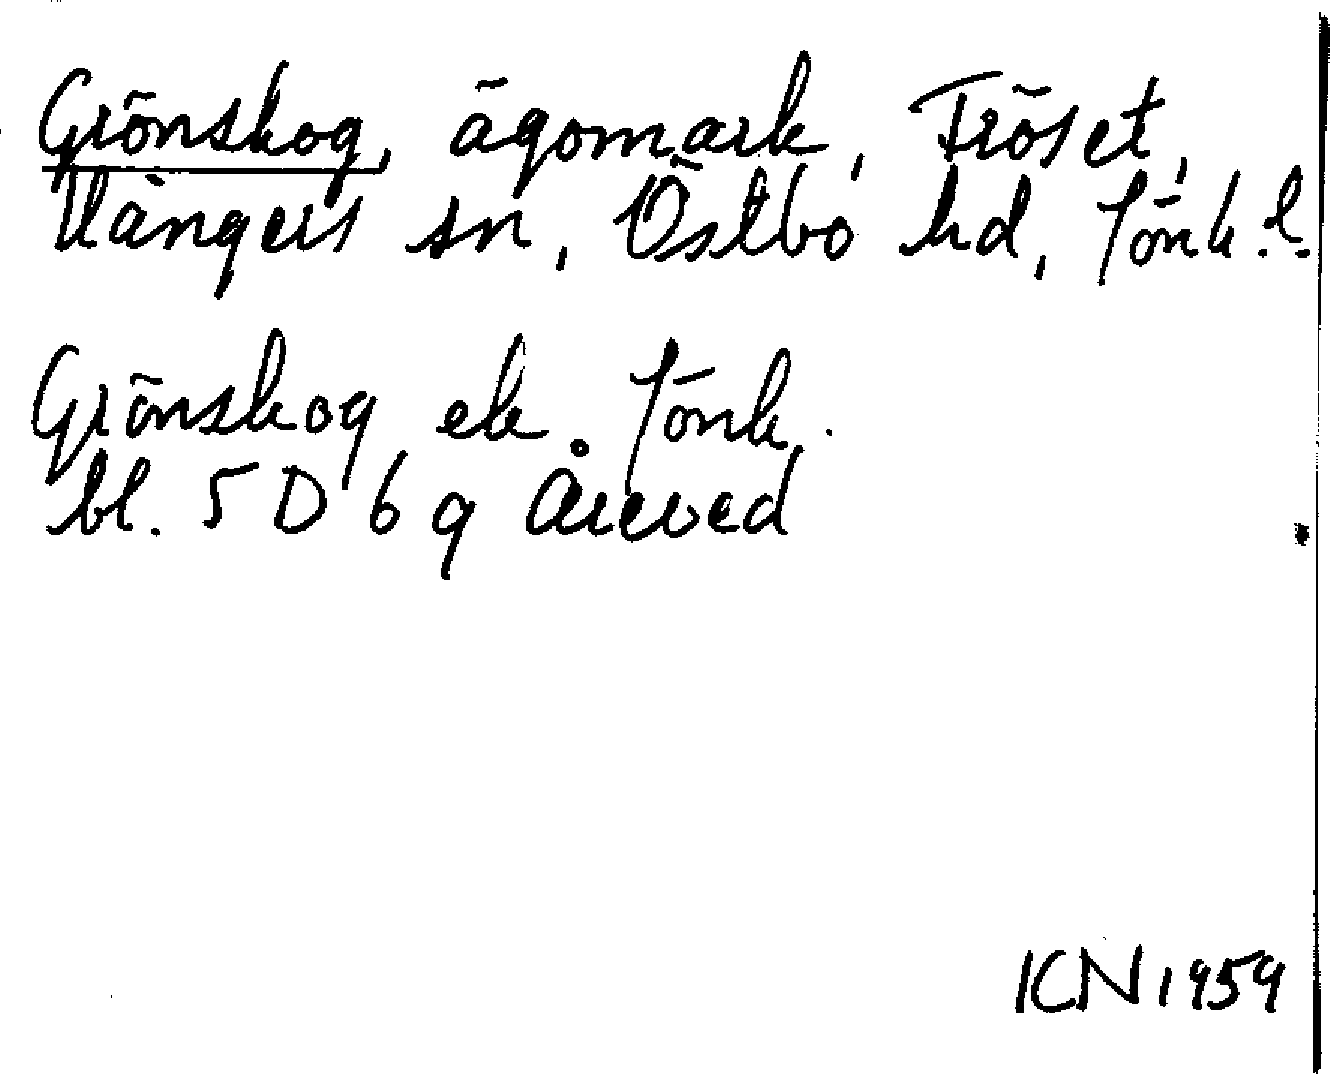 Grönskog, ägomark, Fröset,
Hångers sn, Östbo hd, Jönk. l.
Grönskog ek. Jönk.
bl. 5 D 6 g Åreved
ICN 1959